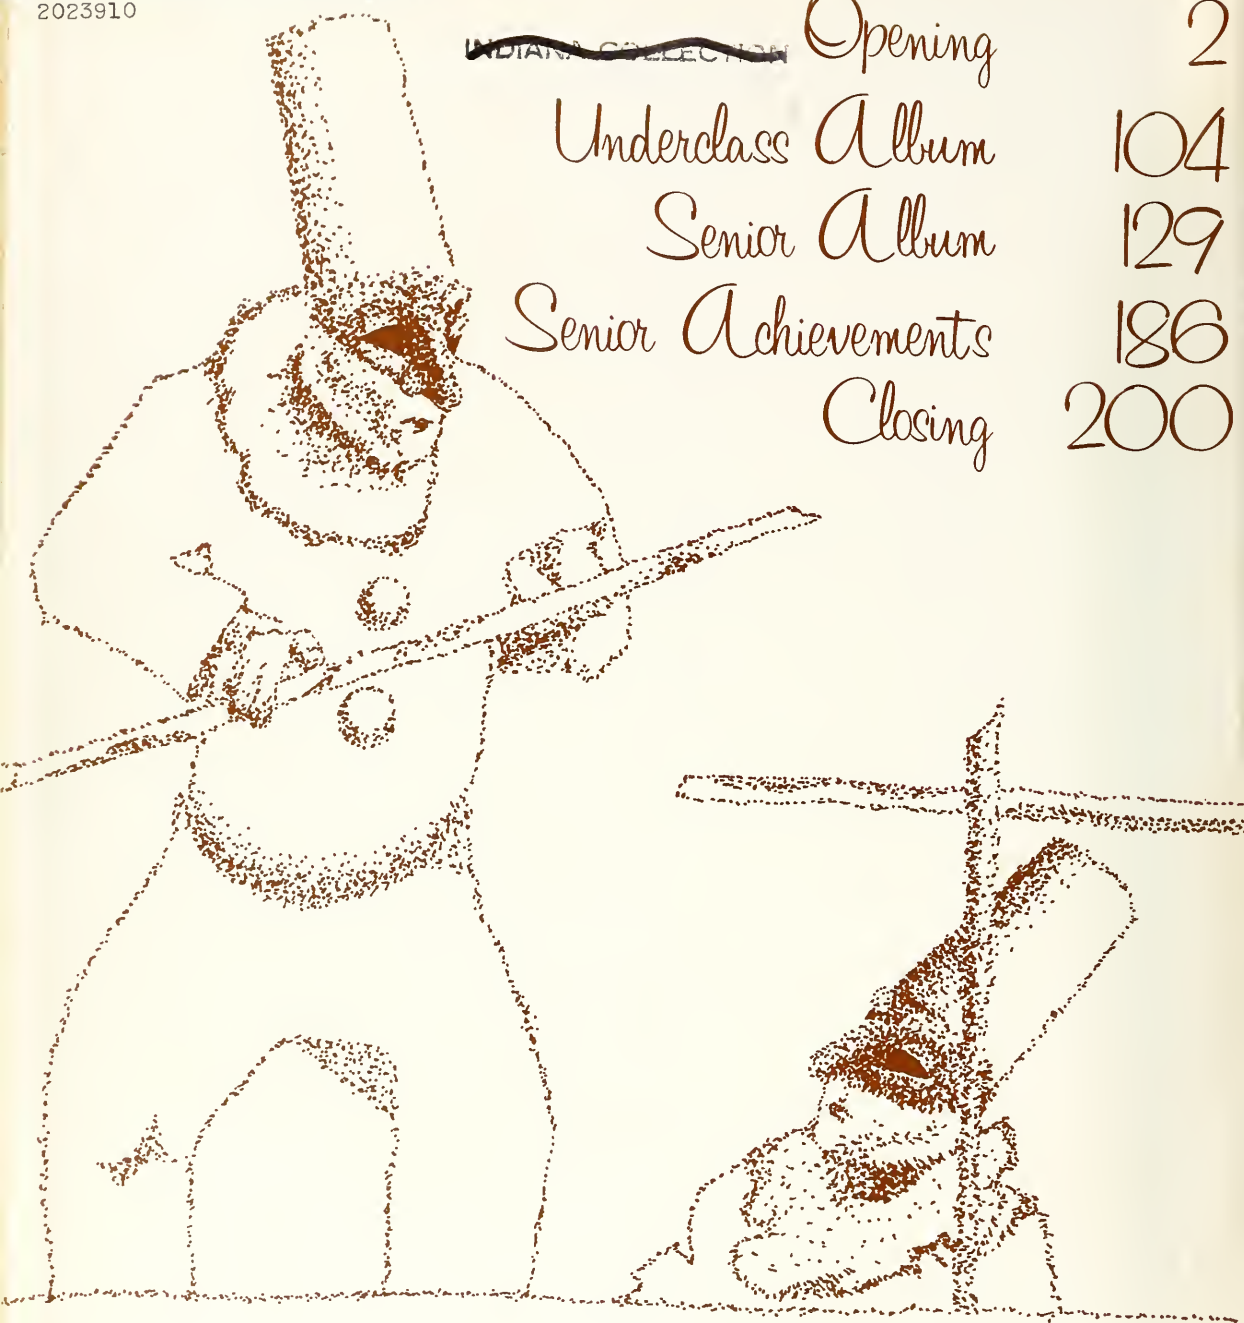 2023910
INDIANA COLLECTION
Opening 2
Underclass Album 104
Senior Album 129
Senior Achievements 186
Closing 200